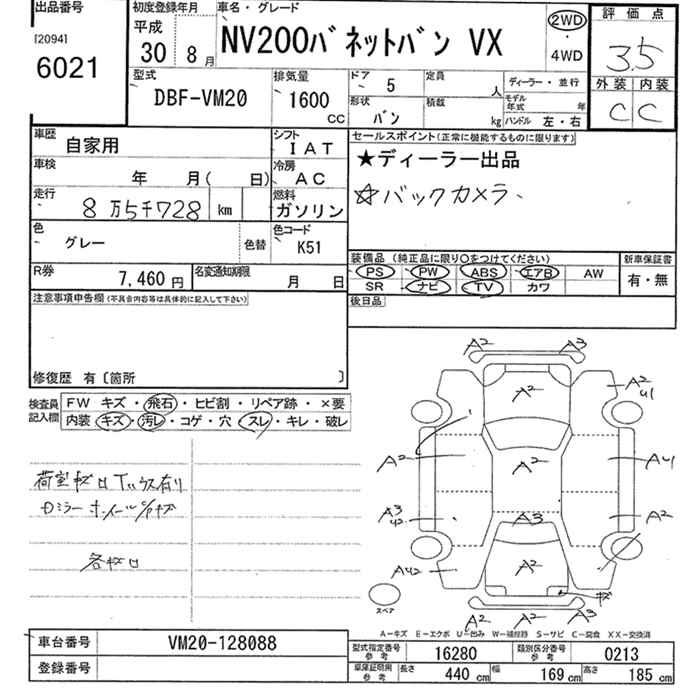 出品番号
[2094]
6021
初度登録年月
平成
30 8 月
車名・グレード
NV200バネットバン VX
2WD
・
4WD
評価点
3.5
外装 内装
C C
型式
DBF-VM20
排気量
1600
CC
ドア 5
定員 人
ディーラー・並行
形状 バン
積載 kg
モデル年式 年
ハンドル 左・右
車歴 自家用
シフト IAT
車検 年 月( 日)
冷房 AC
走行 8万5千728 km
燃料 ガソリン
色 グレー 色替
色コード K51
R券 7,460 円
名変通知期限 月 日
セールスポイント(正常に機能するものに限ります)
★ディーラー出品
☆バックカメラ、
装備品 (純正品に限り○をつけてください)
新車保証書
PS PW ABS エアB AW
SR ナビ TV カワ
有・無
後日品
注意事項申告欄(不具合内容等は具体的に記入して下さい)
修復歴 有〔箇所 〕
検査員記入欄
FW キズ・飛石・ヒビ割・リペア跡・×要
内装 キズ・汚レ・コゲ・穴・スレ・キレ・破レ
A2 A3
A2
A2 U1
A2 A2 A4
A3 A3 A2
A2
A2 A2 A3
スペア
A-キズ E-エクボ U-凹み W-補修跡 S-サビ C-腐食 XX-交換済
車台番号 VM20-128088
登録番号
型式指定番号 参考 16280
類別区分番号 参考 0213
車庫証明用 参考
長さ 440 cm 幅 169 cm 高さ 185 cm